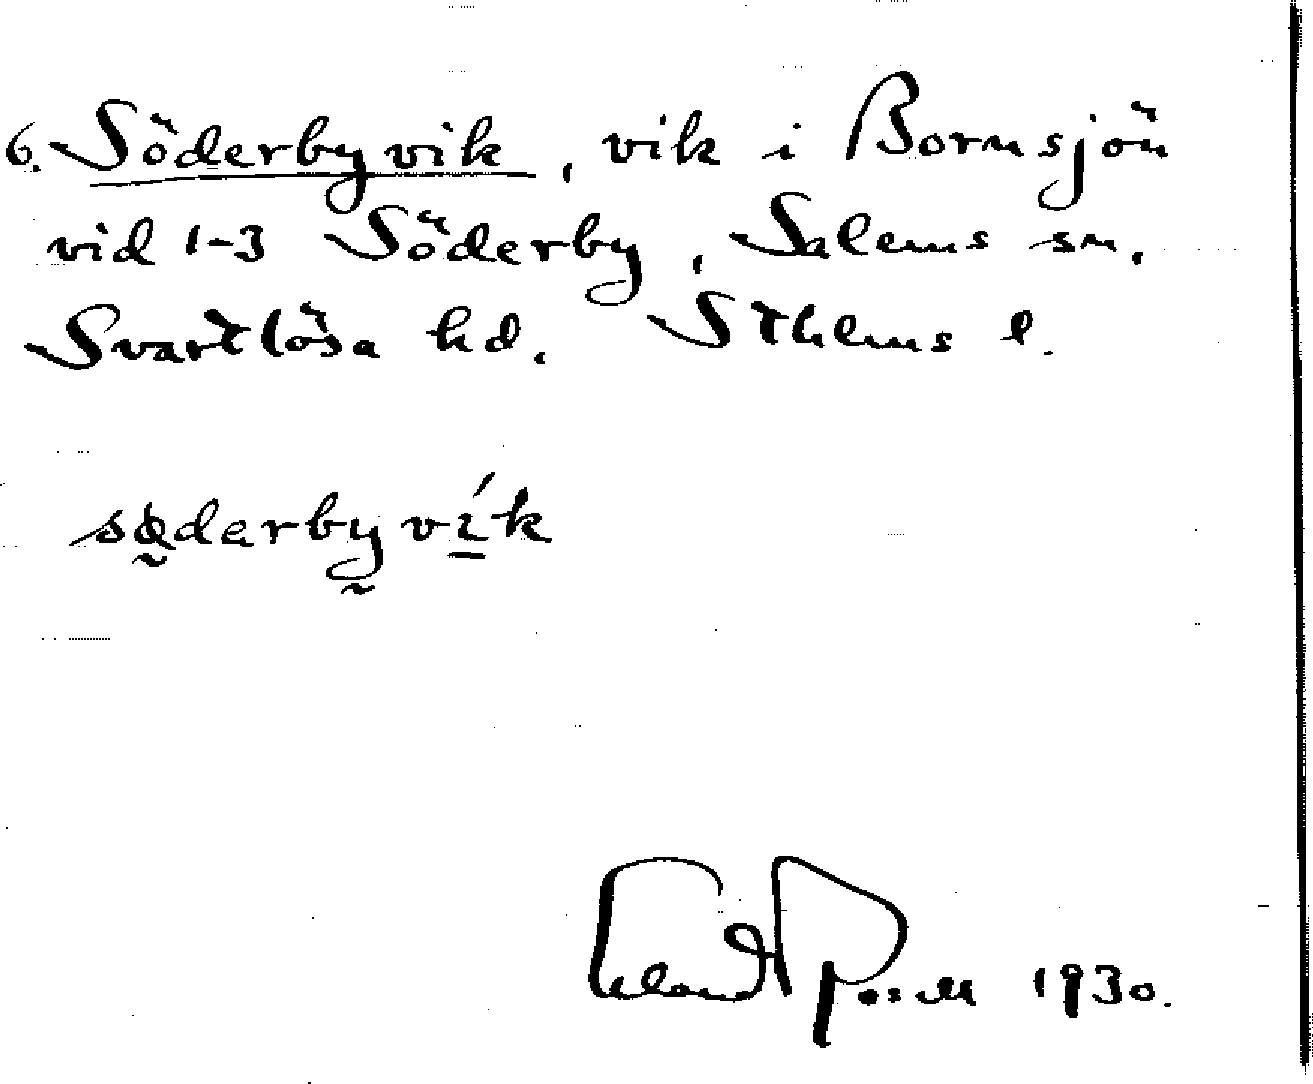 6. Söderbyvik, vik i Bornsjön
vid 1-3 Söderby, Salems sn.
Svartlösa hd. Sthlms l.
sø̰derby̰ví̱k
1930.